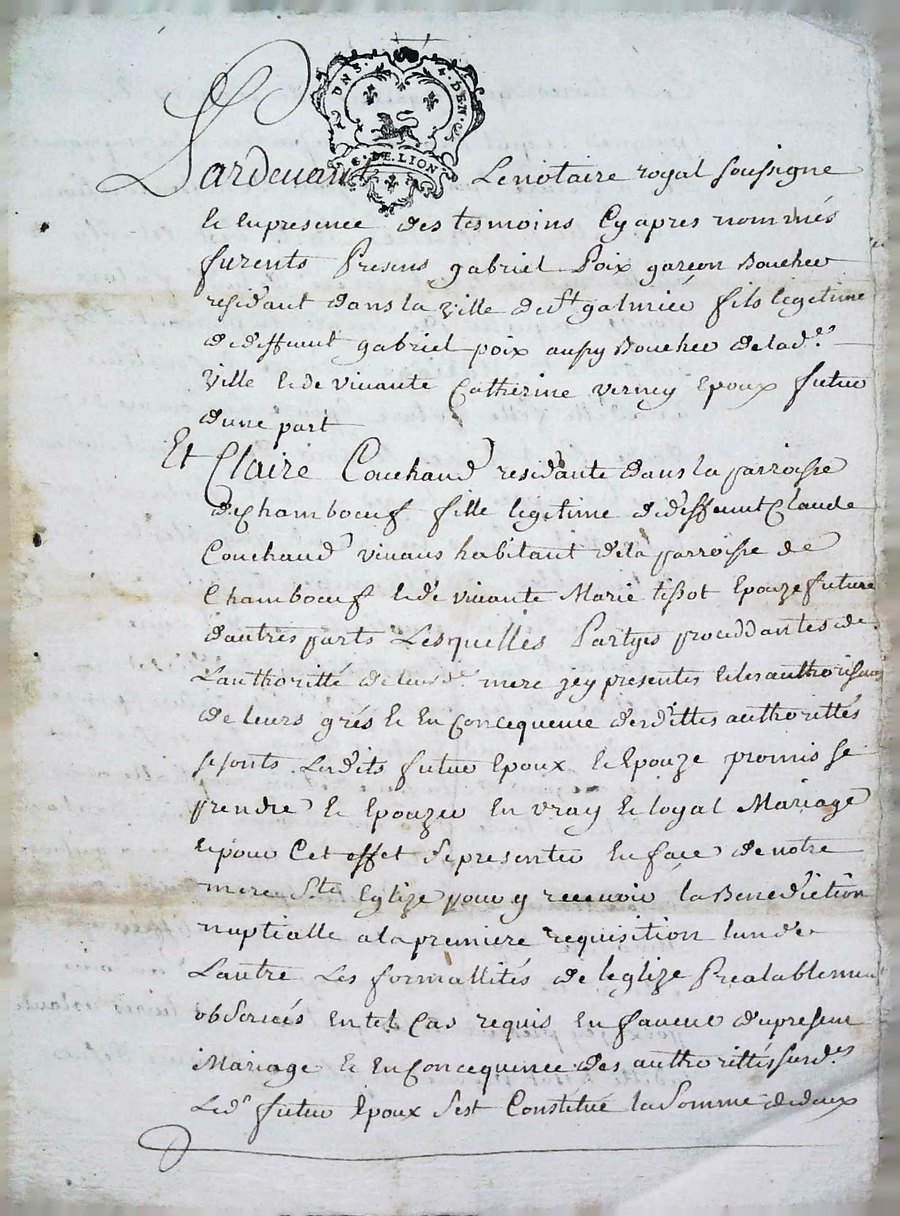 UNS. 4. DEN.
G. DE LION
Pardevant Le notaire royal soussigne
Et En presence des tesmoins Cy apres nommés
furents Presens gabriel Poix garçon Boucher
residant dans la ville de St galmier fils legitime
de deffunt gabriel poix aussy Boucher de lade.
ville et de vivante Catherine verney Epoux futur
d'une part
Et Claire Couchaud residante dans la parroisse
de Chambœuf fille legitime de deffunt Claude
Couchaud vivant habitant de la parroisse de
Chambœuf et de vivante Marie tissot Epouze future
d'autres parts Lesquelles Partyes proceddantes de
L'authoritté de leurs de. mere icy presentes et les authorisant
de leurs grés Et En Concequence desdittes authorittés
se sonts Lesdits futur Epoux Et Epouze promis se
prendre Et Epouzer En vray Et loyal Mariage
et pour Cet effet se presenter En face de notre
mere Ste Eglize pour y recevoir la Benediction
nuptialle a la premiere requisition l'un de
L'autre Les formallités de l'eglize Prealablement
observées En tel Cas requis En faveur du present
Mariage Et En Concequence des authorittés susdes
Led. futur Epoux s'est Constitué la Somme de deux